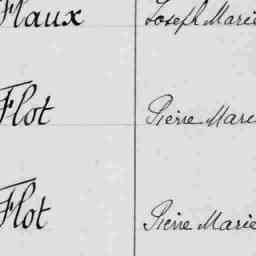 Flaux Joseph Marie
Flot Pierre Marie
Flot Pierre Marie